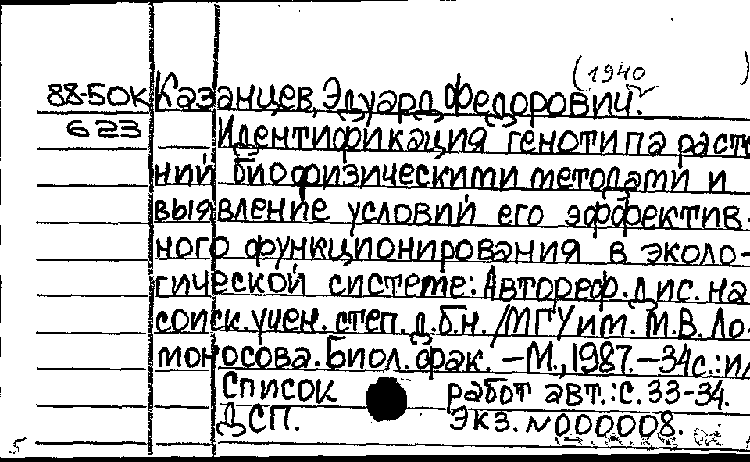 (1940 )
88-5ОК Казанцев, Эдуард Федорович.
623 Идентификация генотипа расте
ний биофизическими методами и
выявление условий его эффектив-
ного функционирования в эколо-
гической системе: Автореф. дис. на
соиск. учен. степ. д.б.н. / МГУ им. М.В. Ло-
моносова. Биол. фак. – М., 1987. – 34 с.: ил
Список работ авт.: с. 33-34.
ДСП. Экз. №000008.
5